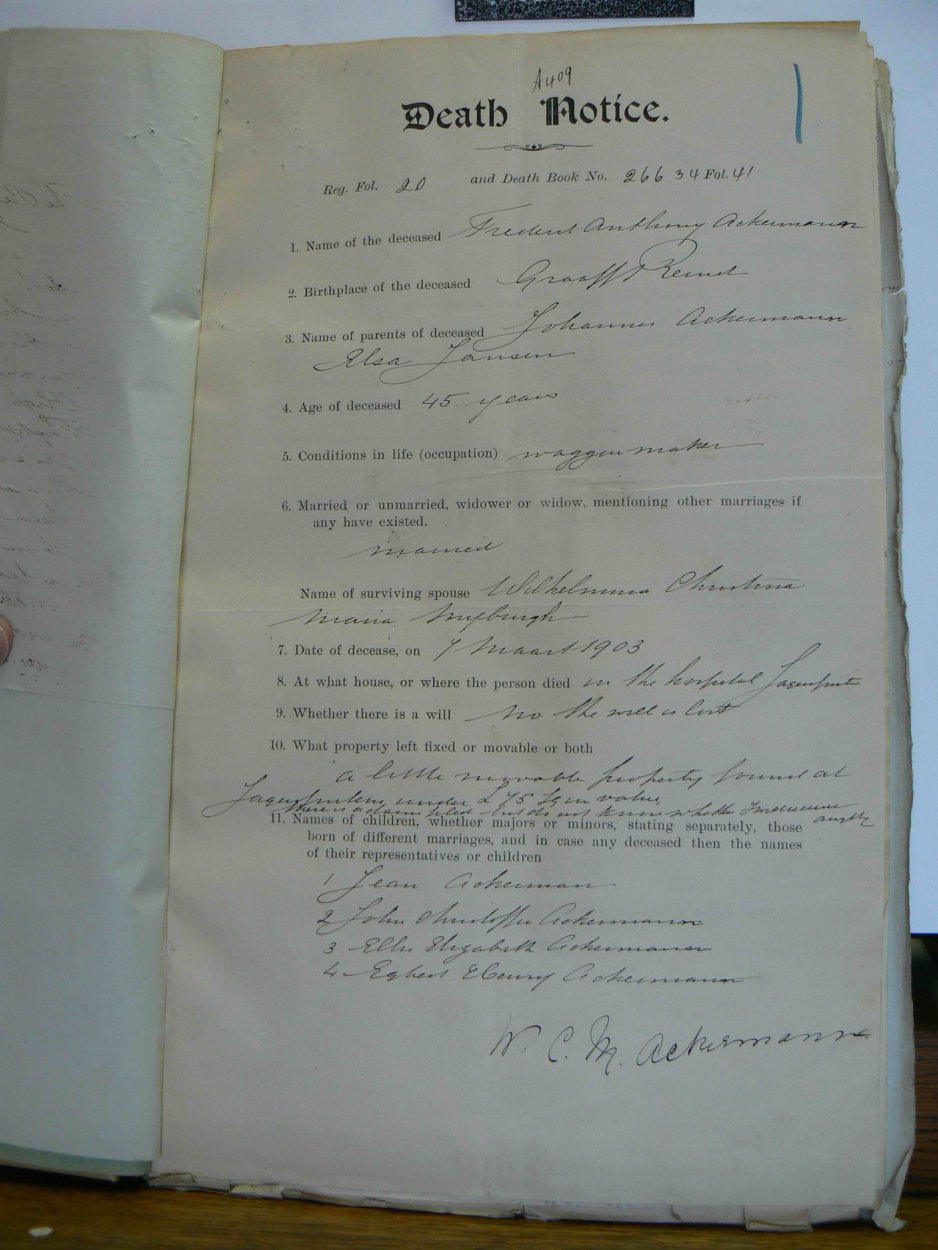 A409
Death Notice.
Reg. Fol. 20 and Death Book No. 26634 Fol. 41
1. Name of the deceased Anthony Ackermann
2. Birthplace of the deceased Graaff Reinet
3. Name of parents of deceased Johannes Ackermann
Elsa Jansen
4. Age of deceased 45 years
5. Conditions in life (occupation) waggon maker
6. Married or unmarried, widower or widow, mentioning other marriages if
any have existed.
married
Name of surviving spouse Wilhelmina Christina
Maria Myburgh
7. Date of decease, on 7 Maart 1903
8. At what house, or where the person died in the hospital
9. Whether there is a will No the will is lost
10. What property left fixed or movable or both
a little movable property found at
under £75 in value
there is a claim filed but do not know whether
11. Names of children, whether majors or minors, stating separately, those
born of different marriages, and in case any deceased then the names
of their representatives or children
1 Jean Ackerman
2 John Christoffer Ackermann
3 Ellis Elizabeth Ackermann
4 Egbert Henry Ackermann
W. C. M. Ackermann